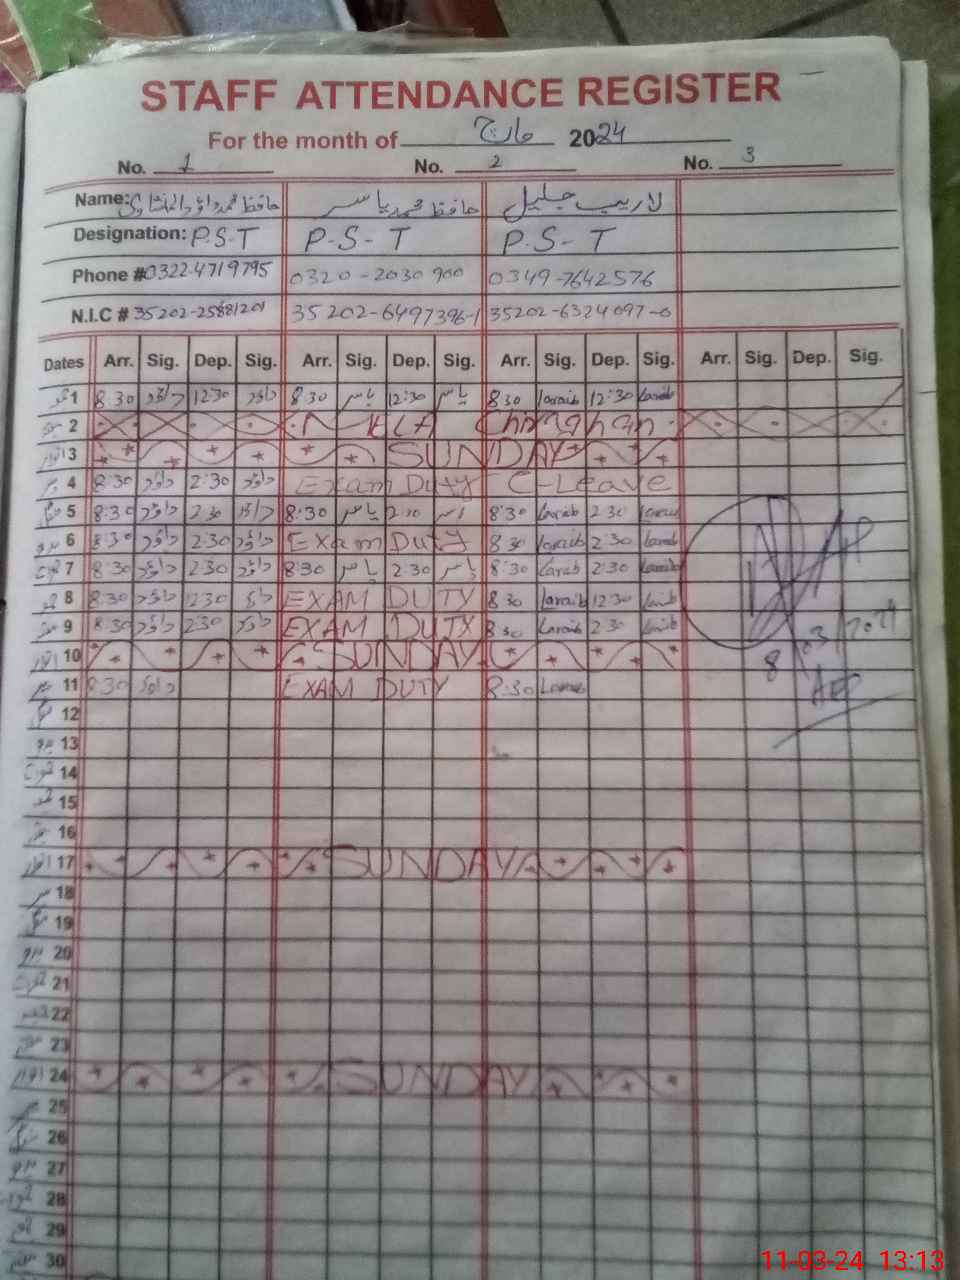 STAFF ATTENDANCE REGISTER
For the month of مارچ 2024
No. 1 No. 2 No. 3
Name: حافظ محمد داؤد حافظ محمد یاسر لاریب جلیل
Designation: P.S.T P-S-T P.S-T
Phone # 0322-4719795 0320-2030900 0349-7642576
N.I.C # 35202-25881201 35202-6497396-1 35202-6324097-0
Dates Arr. Sig. Dep. Sig. Arr. Sig. Dep. Sig. Arr. Sig. Dep. Sig. Arr. Sig. Dep. Sig.
1 8:30 داؤد 12:30 داؤد 8:30 یاسر 12:30 یاسر 8:30 laraib 12:30 Laraib
2
اتوار 3 SUNDAY
4 8:30 داؤد 2:30 داؤد Exam Duty C-Leave
5 8:30 داؤد 2:30 داؤد 8:30 یاسر 2:30 یاسر 8:30 Laraib 2:30 Laraib
6 8:30 داؤد 2:30 داؤد Exam Duty 8:30 Laraib 2:30 Laraib
7 8:30 داؤد 2:30 داؤد 8:30 یاسر 2:30 یاسر 8:30 Laraib 2:30 Laraib
8 8:30 داؤد 12:30 داؤد EXAM DUTY 8:30 Laraib 12:30 Laraib
9 8:30 داؤد 2:30 داؤد EXAM DUTY 8:30 Laraib 2:30 Laraib
اتوار 10 SUNDAY
11 8:30 داؤد EXAM DUTY 8:30 Laraib
8/03/2024
AEO
12
13
14
15
16
اتوار 17 SUNDAY
18
19
20
21
22
23
اتوار 24 SUNDAY
25
26
27
28
29
30
11-03-24 13:13